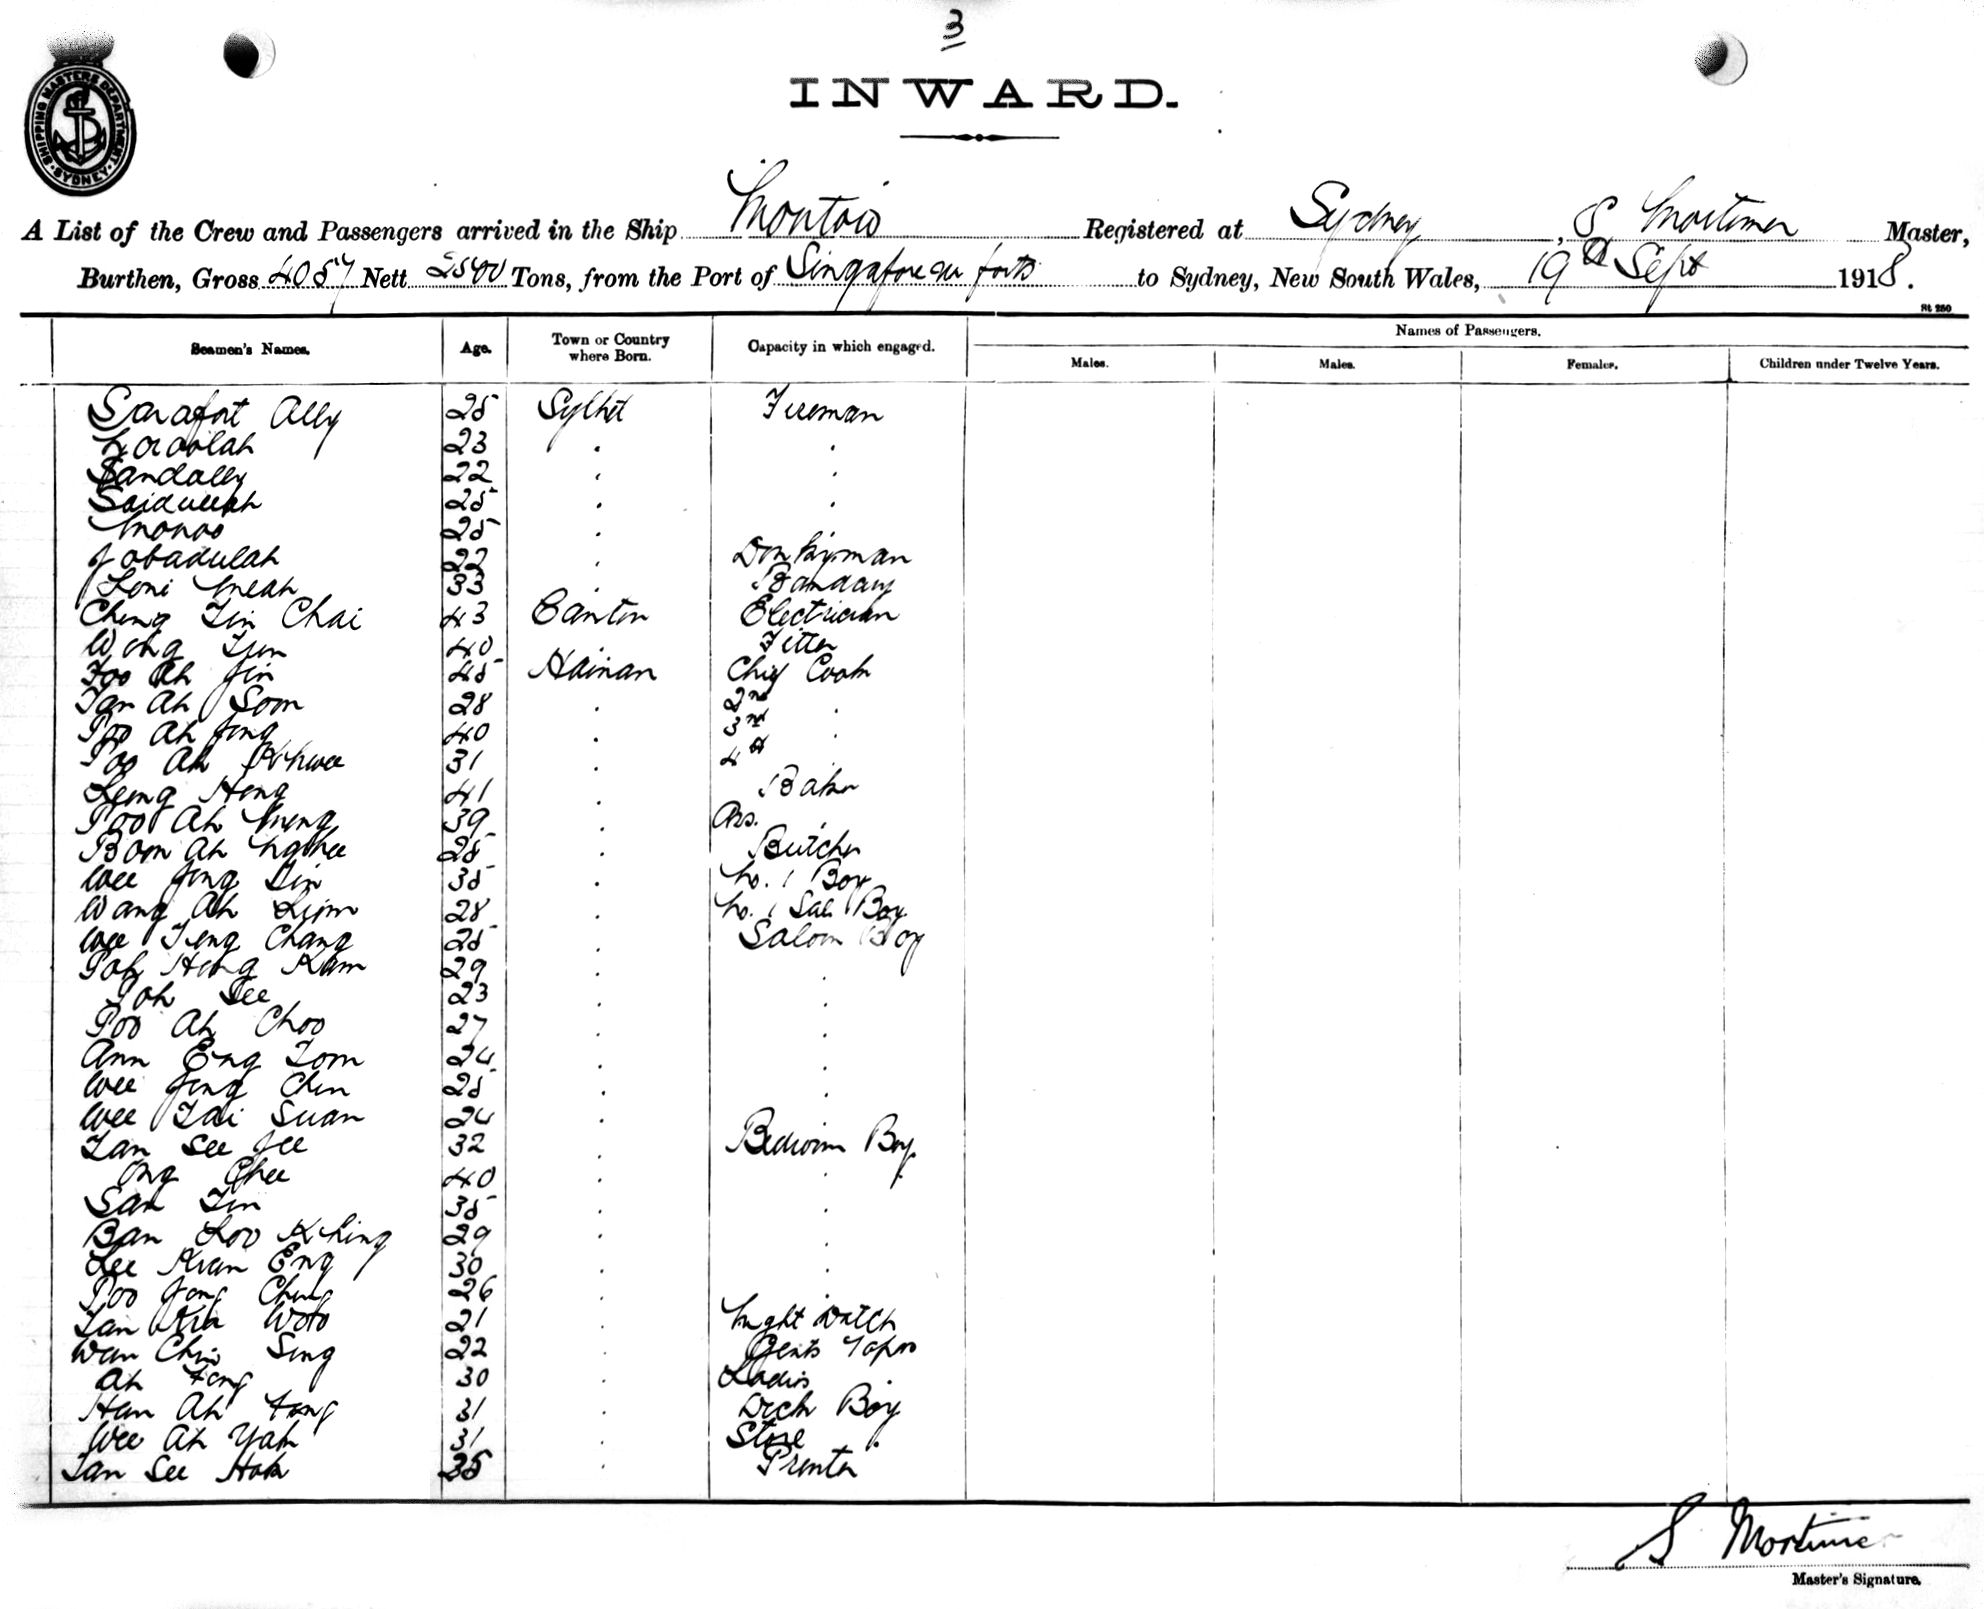 3
SHIPPING MASTERS DEPARTMENT
SYDNEY
INWARD.
A List of the Crew and Passengers arrived in the Ship Montoro Registered at Sydney, S Mortimer Master,
Burthen, Gross 4057 Nett Tons, from the Port of Singapore ports to Sydney, New South Wales, 19th Sept 1918.
St 250
Seamen's Names. Age. Town or Country where Born. Capacity in which engaged. Names of Passengers.
Males. Males. Females. Children under Twelve Years.
Sarafort Ally 25 Sylhet Fireman
23 . .
Sandally 22 . .
Saidullah 25 . .
Monoo 25 .
Jobadulah 22 . Donkeyman
Loni Meah 33 . Bandary
Cheng Tin Chai 43 Canton Electrician
Wong 40 Fitter
Foo Ah Jin 45 Hainan Chief Cook
Tan Ah Soon 28 . 2nd .
Poo Ah Jong 40 . 3rd .
Poo Ah 31 . 4th
Leong Heng 41 . Baker
Poo Ah Meng 39 . Ass. .
Boon Ah 25 . Butcher
Wee Jong Lin 35 . No. 1 Boy
Wang Ah Lim 28 . No. 1 Sal. Boy
Wee Teng Chang 25 . Saloon Boy
Poh Heng Kam 29 . .
Poh See 23 . .
Poo Ah Choo 27 . .
Ann Eng Tom 24 . .
Wee Jong Chin 25 . .
Wee Tai Suan 24 .
Tan See Jee 32 . Bedroom Boy
Ong Chee 40 . .
San Tin 35 . .
Ban Loo Khing 29 . .
Lee Kuan Eng 30 . .
Poo Jong Chung 26 . .
Tan Kia 21 . Night Watch
Wan Chin Sing 22 . Gents Topas
Ah Fong 30 . Ladies
Han Ah Fong 31 . Deck Boy
Wee Ah Yah 31 . Store .
Tan See Hok 35 . Printer
S Mortimer
Master's Signature.